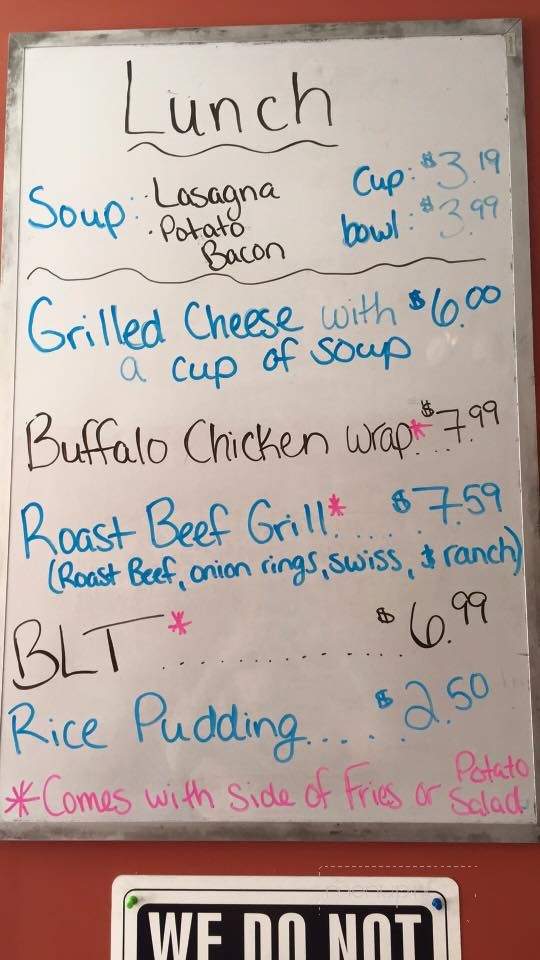 Lunch
Soup: · Lasagna Cup: $3.19
· Potato Bacon bowl: $3.99
Grilled Cheese with $6.00
a cup of soup
Buffalo Chicken wrap*... $7.99
Roast Beef Grill*..... $7.59
(Roast Beef, onion rings, swiss, & ranch)
BLT * .............. $6.99
Rice Pudding..... $2.50
*Comes with side of Fries or Potato Salad
WE DO NOT